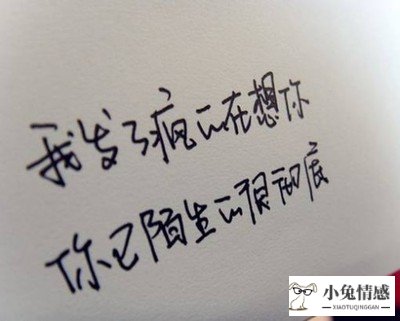 我发了疯的在想你
你已陌生的很彻底
小兔情感
XIAOTUQINGGAN